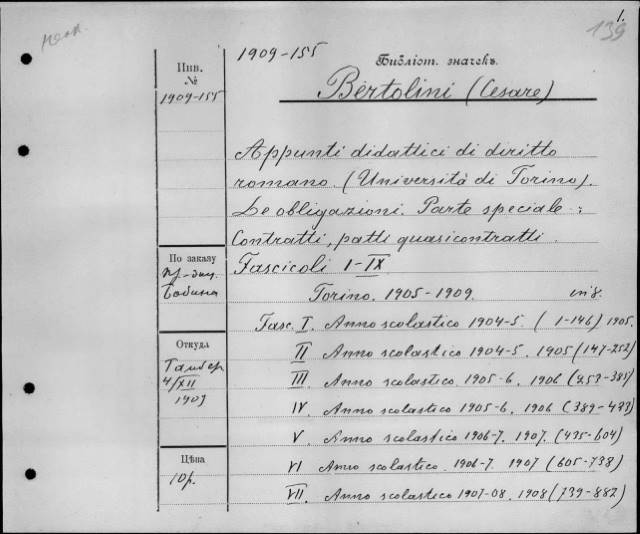 1.
139
1909-155
Библіот. значекъ.
Инв.
№
1909-155
Bertolini (Cesare)
Appunti didattici di diritto
romano. (Università di Torino).
Le obligazioni. Parte speciale:
Contratti, patti quasicontratti.
По заказу
Fascicoli I-IX
Torino. 1905-1909. in 8.
Fasc. I. Anno scolastico 1904-5. (1-146) 1905.
Откуда
II Anno scolastico 1904-5. 1905 (147-252)
4/XII
III. Anno scolastico. 1905-6. 1906 (253-388)
1909
IV. Anno scolastico 1905-6. 1906 (389-433)
V. Anno scolastico 1906-7. 1907. (435-604)
Цѣна
VI Anno scolastico. 1906-7. 1907 (605-738)
10р.
VII. Anno scolastico 1907-08. 1908 (739-882)